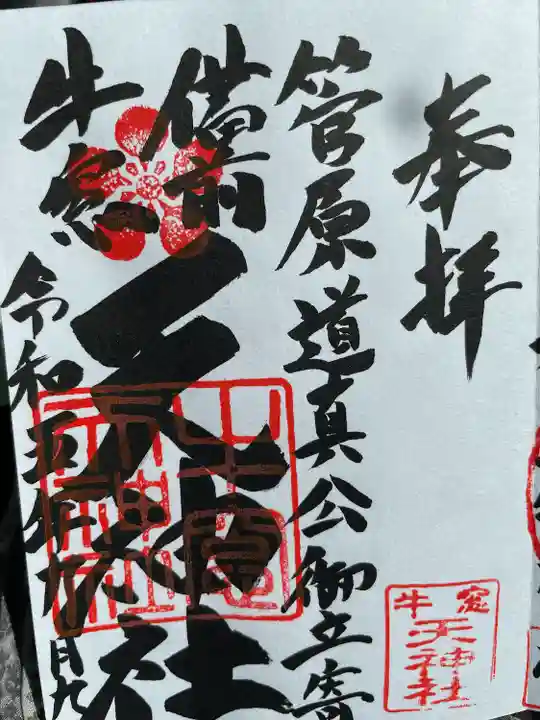 奉拝
菅原道真公御立寄
備前
牛窓
天神社
令和五年
月九
牛窓
天神社